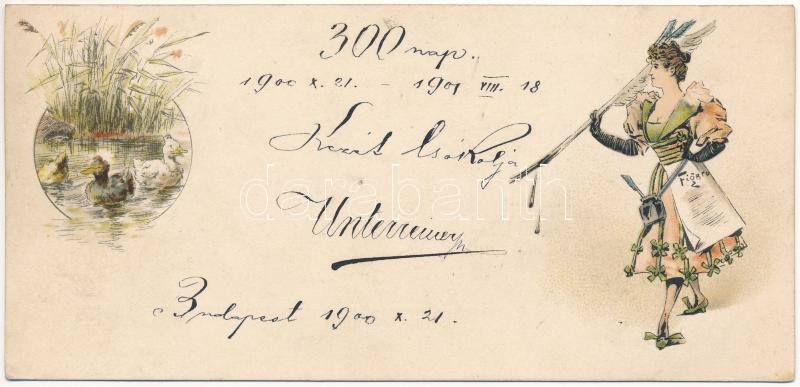 300 nap.
1900 X. 21. - 1901 VIII. 18
Kezét Csókolja
Unterreiner
Budapest 1900 X. 21.
Figaro
darabanth